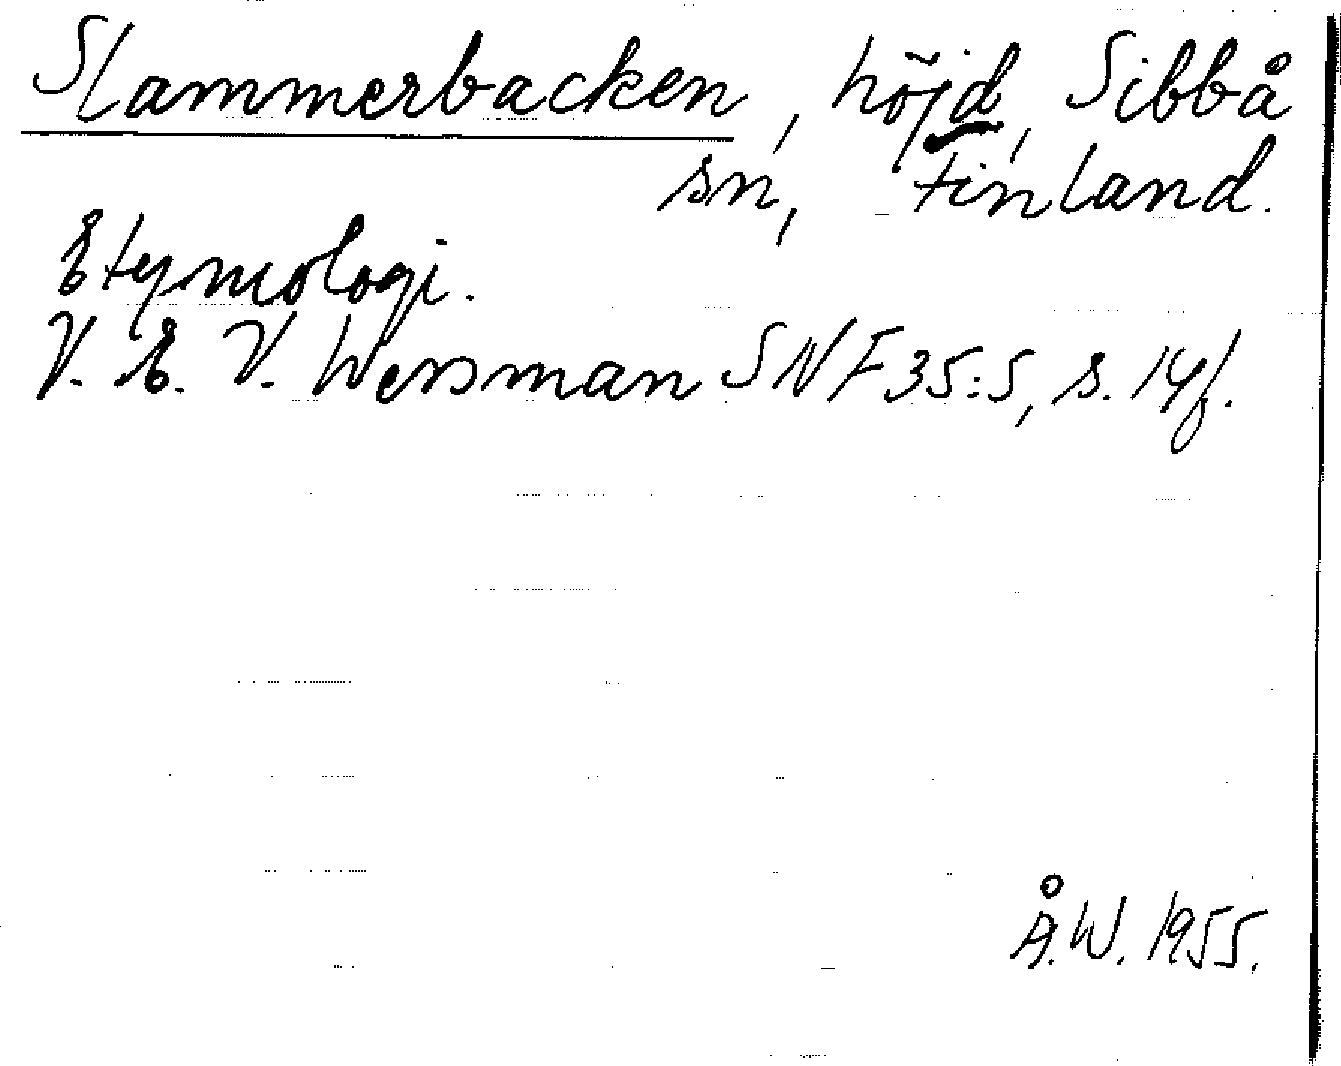 Slammerbacken, höjd, Sibbå
sn, Finland.
Etymologi.
V. E. V. Wessman SNF 35:5, s. 14f.
Å.W. 1955.